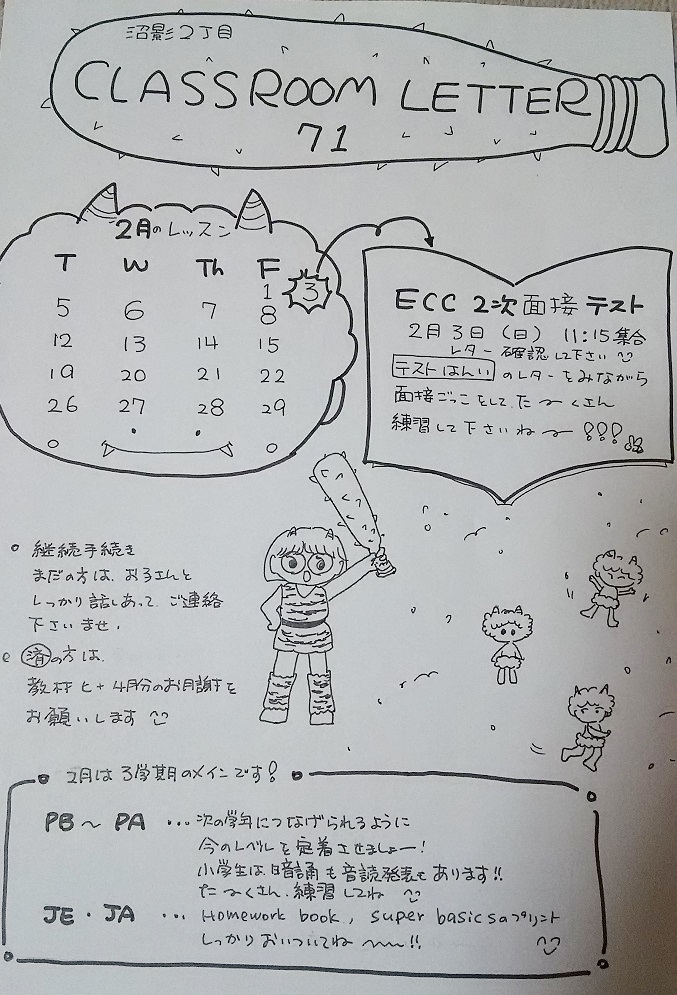 沼影2丁目
CLASSROOM LETTER
71
2月のレッスン
T W Th F
1 3
5 6 7 8
12 13 14 15
19 20 21 22
26 27 28 29
ECC 2次面接テスト
2月3日(日) 11:15集合
レター確認して下さい
テストはんいのレターをみながら
面接ごっこをして、た〜くさん
練習して下さいね〜!!!
継続手続き
まだの方は、お子さんと
しっかり話しあって、ご連絡
下さいませ。
済の方は、
教材ヒ+4月分のお月謝を
お願いします
2月は3学期のメインです!
PB〜PA ...次の学年につなげられるように
今のレベルを定着させましょー!
小学生は暗誦も音読発表もあります!!
た〜くさん、練習してね
JE・JA ... Homework book, super basicsaプリント
しっかりおいついてね〜!!